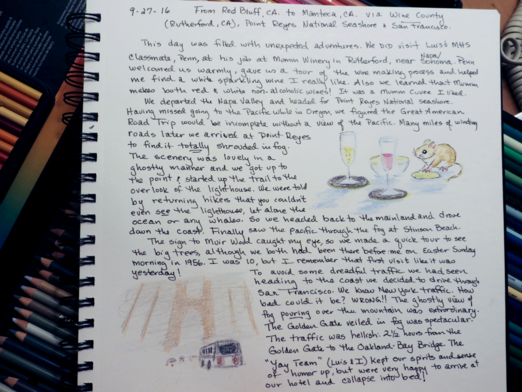 9-27-16 From Red Bluff, CA. to Manteca, CA. via Wine County
(Rutherford, CA), Point Reyes National Seashore & San Francisco.
This day was filled with unexpected adventures. We DID visit Luis' MHS
classmate, Penn, at his job at Mumm Winery in Rutherford, near Sonoma/Napa. Penn
welcomed us warmly, gave us a tour of the wine making process and helped
me find a white sparkling wine I really like. Also we learned that Mumm
makes both red & white non-alcoholic wines! It was a Mumm Cuvee I liked.
We departed the Napa Valley and headed for Point Reyes National Seashore.
Having missed going to the Pacific while in Oregon, we figured the Great American
Road Trip would be incomplete without a view of the Pacific. Many miles of winding
roads later we arrived at Point Reyes
to find it totally shrouded in fog.
The scenery was lovely in a
ghostly manner and we got up to
the point & started up the trail to the
over look of the lighthouse. We were told
by returning hikers that you couldn't
even see the lighthouse, let alone the
ocean or any whales. So we headed back to the mainland and drove
down the coast. Finally saw the Pacific through the fog at Stinson Beach.
The sign to Muir Wood caught my eye, so we made a quick tour to see
the big trees, although we both had been there before me on Easter Sunday
morning in 1956. I was 10, but I remember that first visit like it was
yesterday!
To avoid some dreadful traffic we had seen
heading to the coast we decided to drive through
San Francisco. We know New York traffic. How
bad could it be? WRONG!! The ghostly view of
fog pouring over the mountain was extraordinary.
The Golden Gate veiled in fog was spectacular.
The traffic was hellish: 2½ hours from the
Golden Gate to the Oakland-Bay Bridge. The
"Yay Team" (Luis II) kept our spirits and sense
of humor up, but were very happy to arrive at
our hotel and collapse into bed!